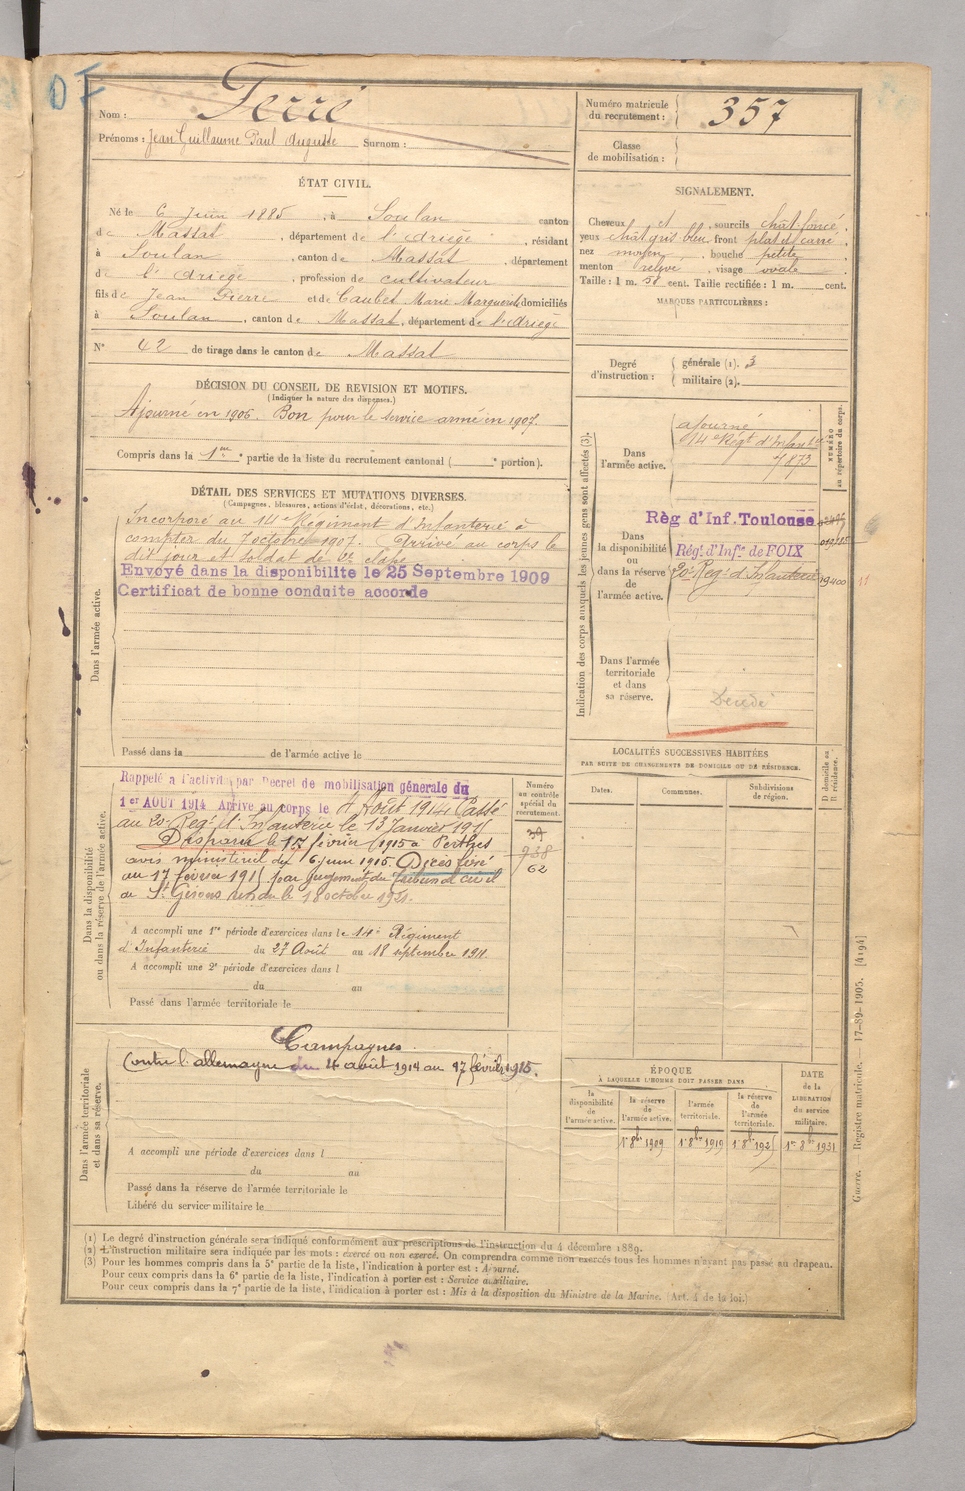 Nom : Ferré
Prénoms : Jean Guillaume Paul Auguste Surnom :
Numéro matricule du recrutement : 357
Classe de mobilisation :
ÉTAT CIVIL.
Né le 6 Juin 1885, à Soulan canton
de Massat, département de l'Ariège, résidant
à Soulan, canton de Massat, département
de l'Ariège, profession de cultivateur
fils de Jean Pierre et de Caubet Marie Marguerite domiciliés
à Soulan, canton de Massat, département de l'Ariège
N° 42 de tirage dans le canton de Massat
SIGNALEMENT.
Cheveux et, sourcils chât foncé,
yeux chât gris bleu, front plat et carré,
nez moyen, bouche petite,
menton relevé, visage ovale
Taille : 1 m. cent. Taille rectifiée : 1 m. cent.
MARQUES PARTICULIÈRES :
Degré d'instruction : générale (1). 3
militaire (2).
DÉCISION DU CONSEIL DE REVISION ET MOTIFS.
(Indiquer la nature des dispenses.)
Ajourné en 1906. Bon pour le service armé en 1907.
Compris dans la 1ère partie de la liste du recrutement cantonal ( portion).
DÉTAIL DES SERVICES ET MUTATIONS DIVERSES.
(Campagnes, blessures, actions d'éclat, décorations, etc.)
Dans l'armée active.
Incorporé au 14e Régiment d'Infanterie à
compter du 7 octobre 1907. Arrivé au corps le
dit jour et soldat de 2e classe
Envoyé dans la disponibilité le 25 Septembre 1909
Certificat de bonne conduite accordé
Passé dans la de l'armée active le
Indication des corps auxquels les jeunes gens sont affectés (3).
NUMÉRO au répertoire du corps.
Dans l'armée active.
ajourné
14e Régt d'Infanterie
7873
Dans la disponibilité ou dans la réserve de l'armée active.
Règ d'Inf. Toulouse
Régt d'Infie de FOIX
20e Regt d'Infanterie 19400
Dans l'armée territoriale et dans sa réserve.
Décédé
LOCALITÉS SUCCESSIVES HABITÉES
PAR SUITE DE CHANGEMENTS DE DOMICILE OU DE RÉSIDENCE.
Dates. Communes. Subdivisions de région. D domicile ou R résidence.
Dans la disponibilité ou dans la réserve de l'armée active.
Numéro au contrôle spécial du recrutement.
39
938
62
Rappelé à l'activité par Décret de mobilisation générale du
1er AOUT 1914 Arrivé au corps le 4 Août 1914. Passé
au 20e Regt d'Infanterie le 13 Janvier 1915
Disparu le 17 février 1915 à Perthes
avis ministeriel du 6 juin 1915. Décès fixé
au 17 février 1915 par jugement du Tribunal civil
de St Girons rendu le 18 octobre 1921.
A accompli une 1re période d'exercices dans le 14e Régiment
d'Infanterie du 27 Août au 18 septembre 1911.
A accompli une 2e période d'exercices dans l
du au
Passé dans l'armée territoriale le
Dans l'armée territoriale et dans sa réserve.
Campagnes
Contre l'allemagne du 4 août 1914 au 17 février 1915.
A accompli une période d'exercices dans l
du au
Passé dans la réserve de l'armée territoriale le
Libéré du service militaire le
ÉPOQUE
À LAQUELLE L'HOMME DOIT PASSER DANS
la disponibilité de l'armée active.
la réserve de l'armée active.
l'armée territoriale.
la réserve de l'armée territoriale.
DATE de la LIBÉRATION du service militaire.
1er 8bre 1909 1er 8bre 1919 1er 8bre 1925 1er 8bre 1931
(1) Le degré d'instruction générale sera indiqué conformément aux prescriptions de l'instruction du 4 décembre 1889.
(2) L'instruction militaire sera indiquée par les mots : exercé ou non exercé. On comprendra comme non exercés tous les hommes n'ayant pas passé au drapeau.
(3) Pour les hommes compris dans la 5e partie de la liste, l'indication à porter est : Ajourné.
Pour ceux compris dans la 6e partie de la liste, l'indication à porter est : Service auxiliaire.
Pour ceux compris dans la 7e partie de la liste, l'indication à porter est : Mis à la disposition du Ministre de la Marine. (Art. 4 de la loi.)
Guerre. Registre matricule. — 17-89-1905. [4194]